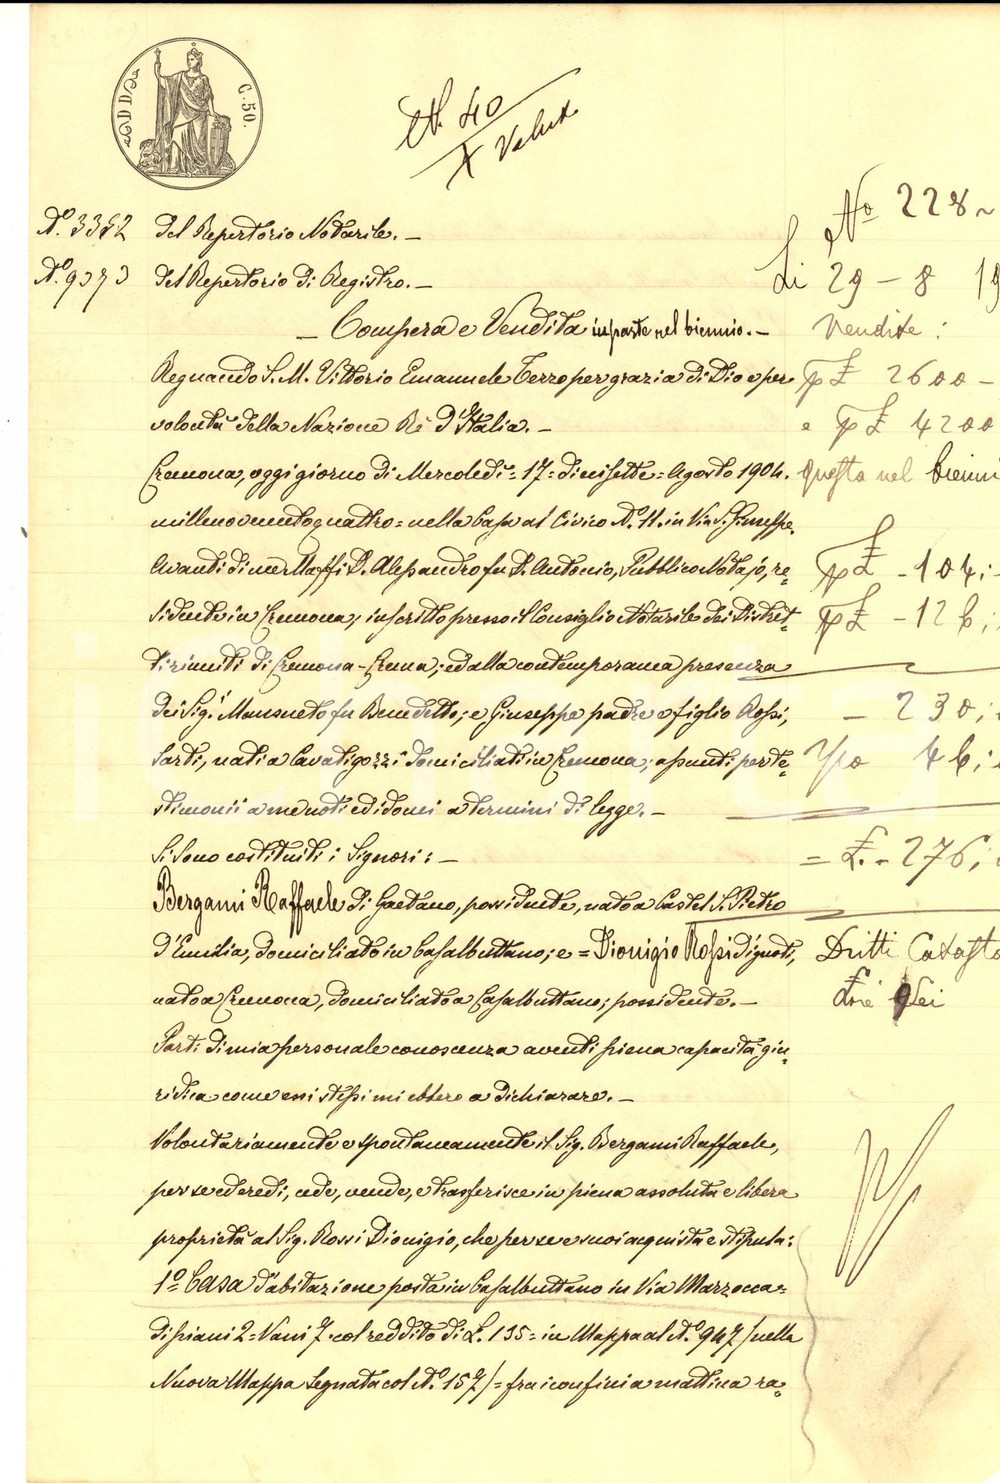 C. 50.
N. 40
N.º 3382 del Repertorio Notarile. —
N.º 9373 del Repertorio di Registro. —
Nº 228
Li 29 - 8 19
— Compera e Vendita in parte nel biennio. —
Vendite:
Regnando S. M. Vittorio Emanuele Terzo per grazia di Dio e per
p £ 2600 -
volontà della Nazione Rè d'Italia. —
e p £ 4200
Cremona, oggi giorno di Mercoledì = 17 = diciisette = Agosto 1904.
questa nel bienni
millenovecentoquattro = nella Casa al Civico N.º 11. in Via S. Giuseppe.
Avanti di me Maffi D. Alessandro fu D. Antonio, Pubblico Notajo, re=
p £ - 104; -
sidente in Cremona, inscritto presso il Consiglio Notarile dei Distret=
p £ - 126;
ti riuniti di Cremona - Crema; ed alla contemporanea presenza
dei Sig.i Mansueto fu Benedetto; e Giuseppe padre e figlio Rossi,
- 230;
Sarti, nati a Cavatigozzi domiciliati in Cremona; assunti per te=
46;
stimonii a me noti ed idonei a termini di legge. —
Si sono costituiti i Signori: —
= £. - 276;
Bergami Raffaele di Gaetano, possidente, nato a Castel S. Pietro
d'Emilia, domiciliato in Casalbuttano; e = Dionigio Rossi d'ignoti,
Dritti Catasto
nato a Cremona, domiciliato a Casalbuttano; possidente. —
Parti di mia personale conoscenza aventi piena capacità giu=
ridica come essi stessi mi ebbero a dichiarare. —
Volontariamente e spontaneamente il Sig. Bergami Raffaele,
per se ed eredi, cede, vende, e trasferisce in piena assoluta e libera
proprietà al Sig. Rossi Dionigio, che per se e suoi acquista e stipula:
1º Casa d'abitazione posta in Casalbuttano in Via Marzocca=
di piani 2 = Vani 7. col reddito di L. 135 = in Mappa al N.º 947 / nella
Nuova Mappa segnata col N.º 157 / = fra i confini a mattina ra=